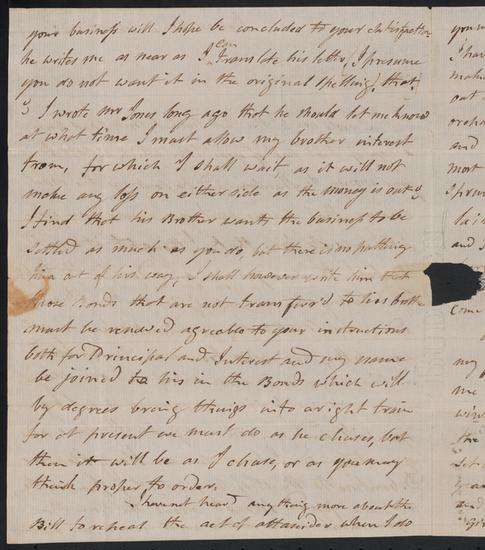 your business will I hope be concluded to your satisfaction
he writes me as near as I can Translate his letter, I presume
you do not want it in the original spelling, that,
I wrote Mr Jones long ago that he should let me know
at what time I must allow my brother interest
from, for which I shall wait as it will not
make any loss on either side as the money is out
I find that his Brother wants the business to be
settled as much as you do, but there is no putting
him out of his way, I shall however write him that
those Bonds that are not transfer'd to his brother
must be renewed agreable to your instructions
both for Principal and Interest and my name
be joined to his in the Bonds which will
by degrees bring things into a right train
for at present we must do as he chuses, but
then it will be as I chuse, or as you may
think proper to order.
I havenot heard any thing more about the
Bill to repeal the act of attainder when I do
you
I ha
make
out
and
most
I presu
and
Come
my
me
the
and